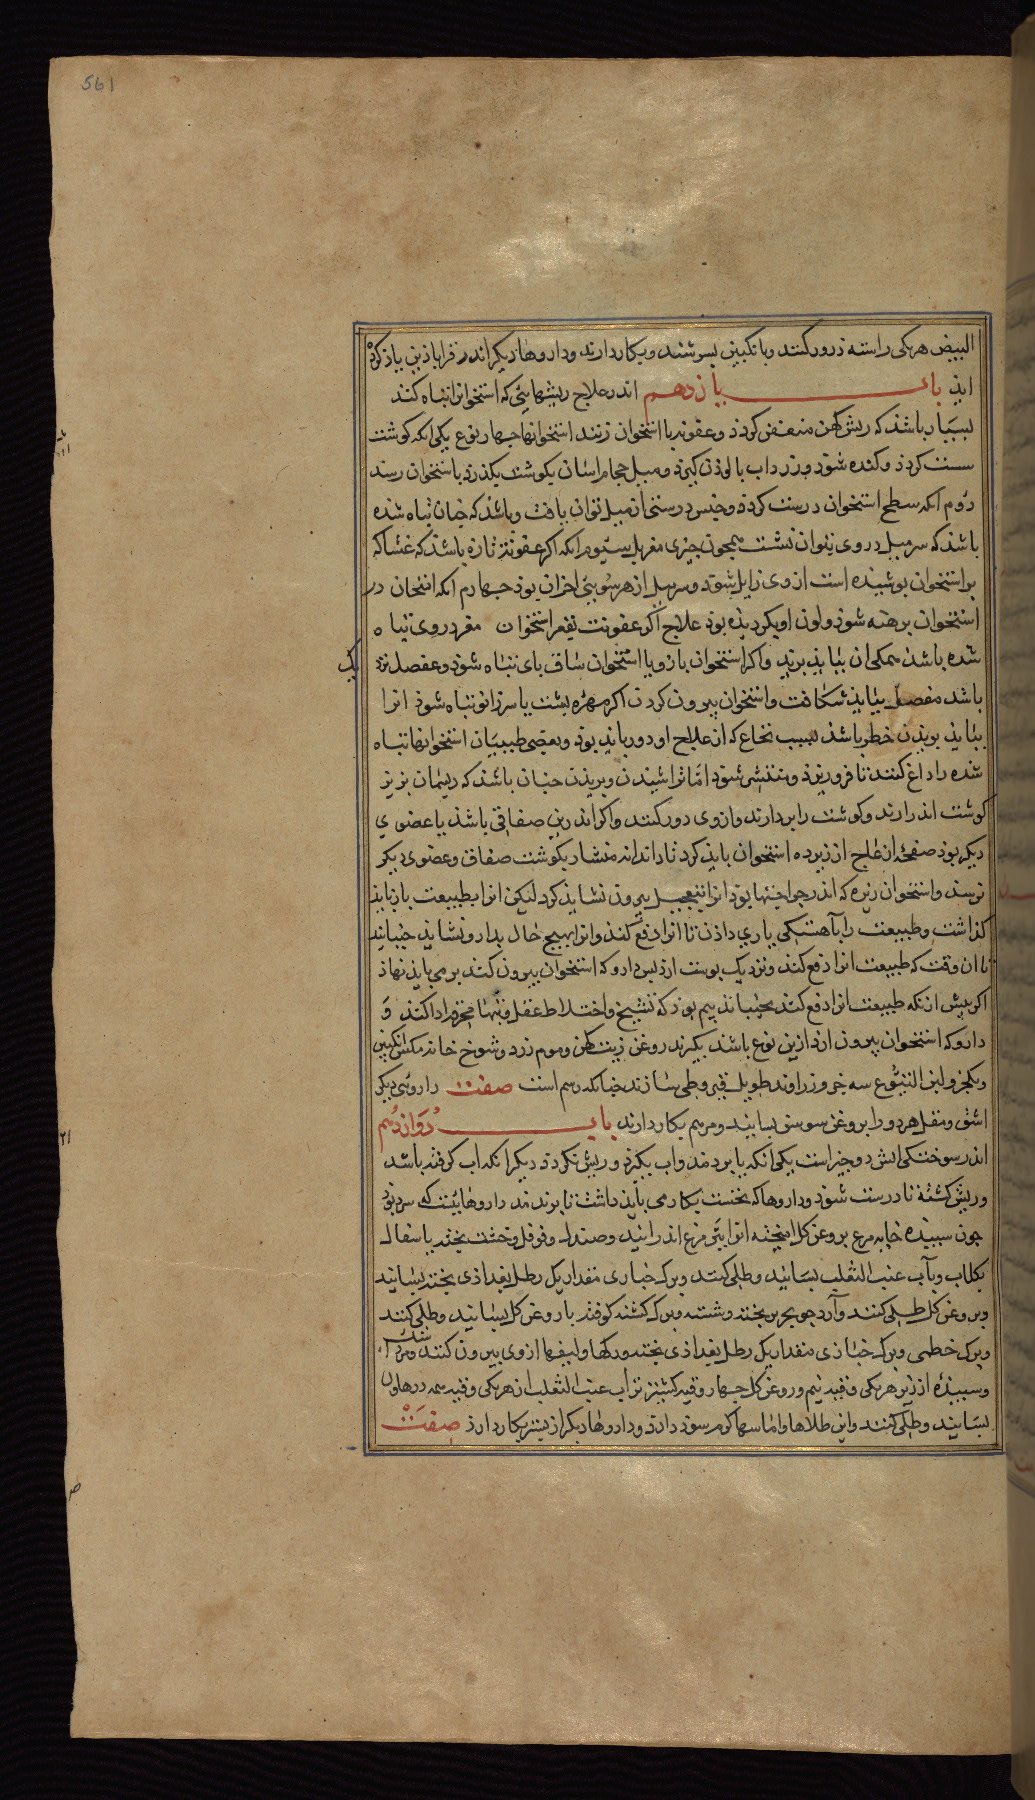 561
البیض هر یکی راسته درور کنند و با نکبین بسرشند و بکار دارند و داروها دیکر اندر قرابادین یاذ کرده
ایذ باب یازدهم اندر علاج ریشهایئی که استخوانرا تباه کند
بسیار باشذ که ریش کهن متعفن کردد و عفونه با استخوان زنند استخوانها جهار نوع یکی انکه کوشت
سست کردد و کنده شود و زرداب بالوذن کیرد و میل حجام اسان بکوشت بکذرد باستخوان رسد
دوم انکه سطح استخوان درست کردد و جنس درستی از میل توان یافت و باشذ که جنان تباه شده
باشذ که سر میل در وی نتوان نشت همجون جیزی مغربل سیوم انکه اکر عفونه تازه باشذ که غشا که
بر استخوان بوشیده است از وی زایل شود و سر میل از هر سوئی لغزان بوذ جهارم انکه استخوان در
استخوان برهنه شود و لون او بکردیده بوذ علاج اکر عفونت بقعر استخوان مغز در وی تباه
شده باشذ همکی ان بباید برید واکر استخوان بازو یا استخوان ساق بای تباه شود و مفصل نزدیک
باشد مفصل بباید شکافت و استخوان بیرون کردن اکر مهره بشت یا سر زانو تباه شوذ انرا
بباید بریدن خطر باشذ بسبب نخاع که از علاج او دور باید بوذ و بعضی طبیبان استخوانها تباه
شده را داغ کنند تا فرو ریزد و منتشر شود اما تراشیدن و بریدن جنان باشذ که ریسمان بزیر
کوشت اندر ارند و کوشت را بردارند و از وی دور کنند و اکر اندر بن صفاقی باشذ یا عضوی
دیکر بوذ صفحهٔ از عاج از زیر ده استخوان باید کرد تا دندانه منشار بکوشت صفاق و عضوی دیکر
نرسد و استخوان ریزه که اندر جراحتها بوذ انرا بتعجیل بیرون نشاید کرد لیکن انرا بطبیعت باز باید
کذاشت و طبیعت را بآهستکی یاری داذن تا انرا دفع کند و انرا بهیچ حال بدارو نشاید جنبانید
تا ان وقت که طبیعت انرا دفع کند و نزدیک بوست ارد بس دارو که استخوان بیرون کند بر می باید نهاذ
اکر بیش از انکه طبیعت انرا دفع کند بجنبانند بیم بوذ که تشنج و اختلاط عقل و تبها محرقه اداکند و
دارو که استخوان بیرون ارد ازین نوع باشد بکیرند روغن زیت کهن و موم زرد و شوخ خانه مکس انکبین
ریکجز و لبن الیتوع سه جزو زراوند طویل قیروطی سازند جنانکه رسم است صفت داروئی دیکر
اشق و مقل هر دو را بروغن سوسن بسایند و مرهم بکار دارند باب دوازدهم
اندر سوختکی اتش دو جیز است یکی انکه بابردمد و اب بکیرد و ریش نکردد دیکر انکه اب کرفته باشد
و ریش کشته تا درست شود و داروها که نخست بکار می باید داشت تا بر ندمد داروهائیست که سرد بود
جون سبیده خایه مرغ بروغن کل امیخته انرا بپر مرغ اندر مالند و صندل و فوفل و خشت بخته یا سفال
بکلاب و بآب عنب الثعلب بسایند و طلی کنند و برک خبازی مقدار یک رطل بغدادی بختد بسایند
و بروغن کل طلی کنند و آرد جو بحریر بیخته و شسته و برک کشنه کوفته با روغن کل بسایند و طلی کنند
و برک خطمی و برک خبازی مقدار یک رطل بغداذی بخته و رکها و لیفها از وی بیرون کنند و مرداسنک
و سبیذه ارزیز هر یکی وقیه نیم و روغن کل جهار وقیه کشنیز تر آب عنب الثعلب از هر یکی وقیه سه در هاون
بسایند و طلی کنند و این طلاها و اماسها کرم سود دارد و داروها دیکر از بیشتر بکار دارذ صفت